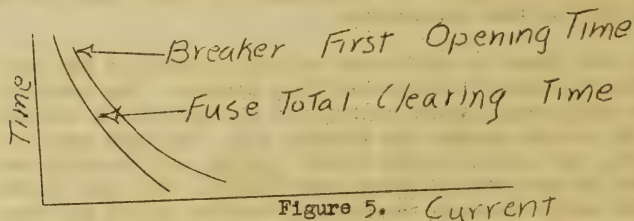 Breaker First Opening Time
Fuse Total Clearing Time
Time
Figure 5. Current